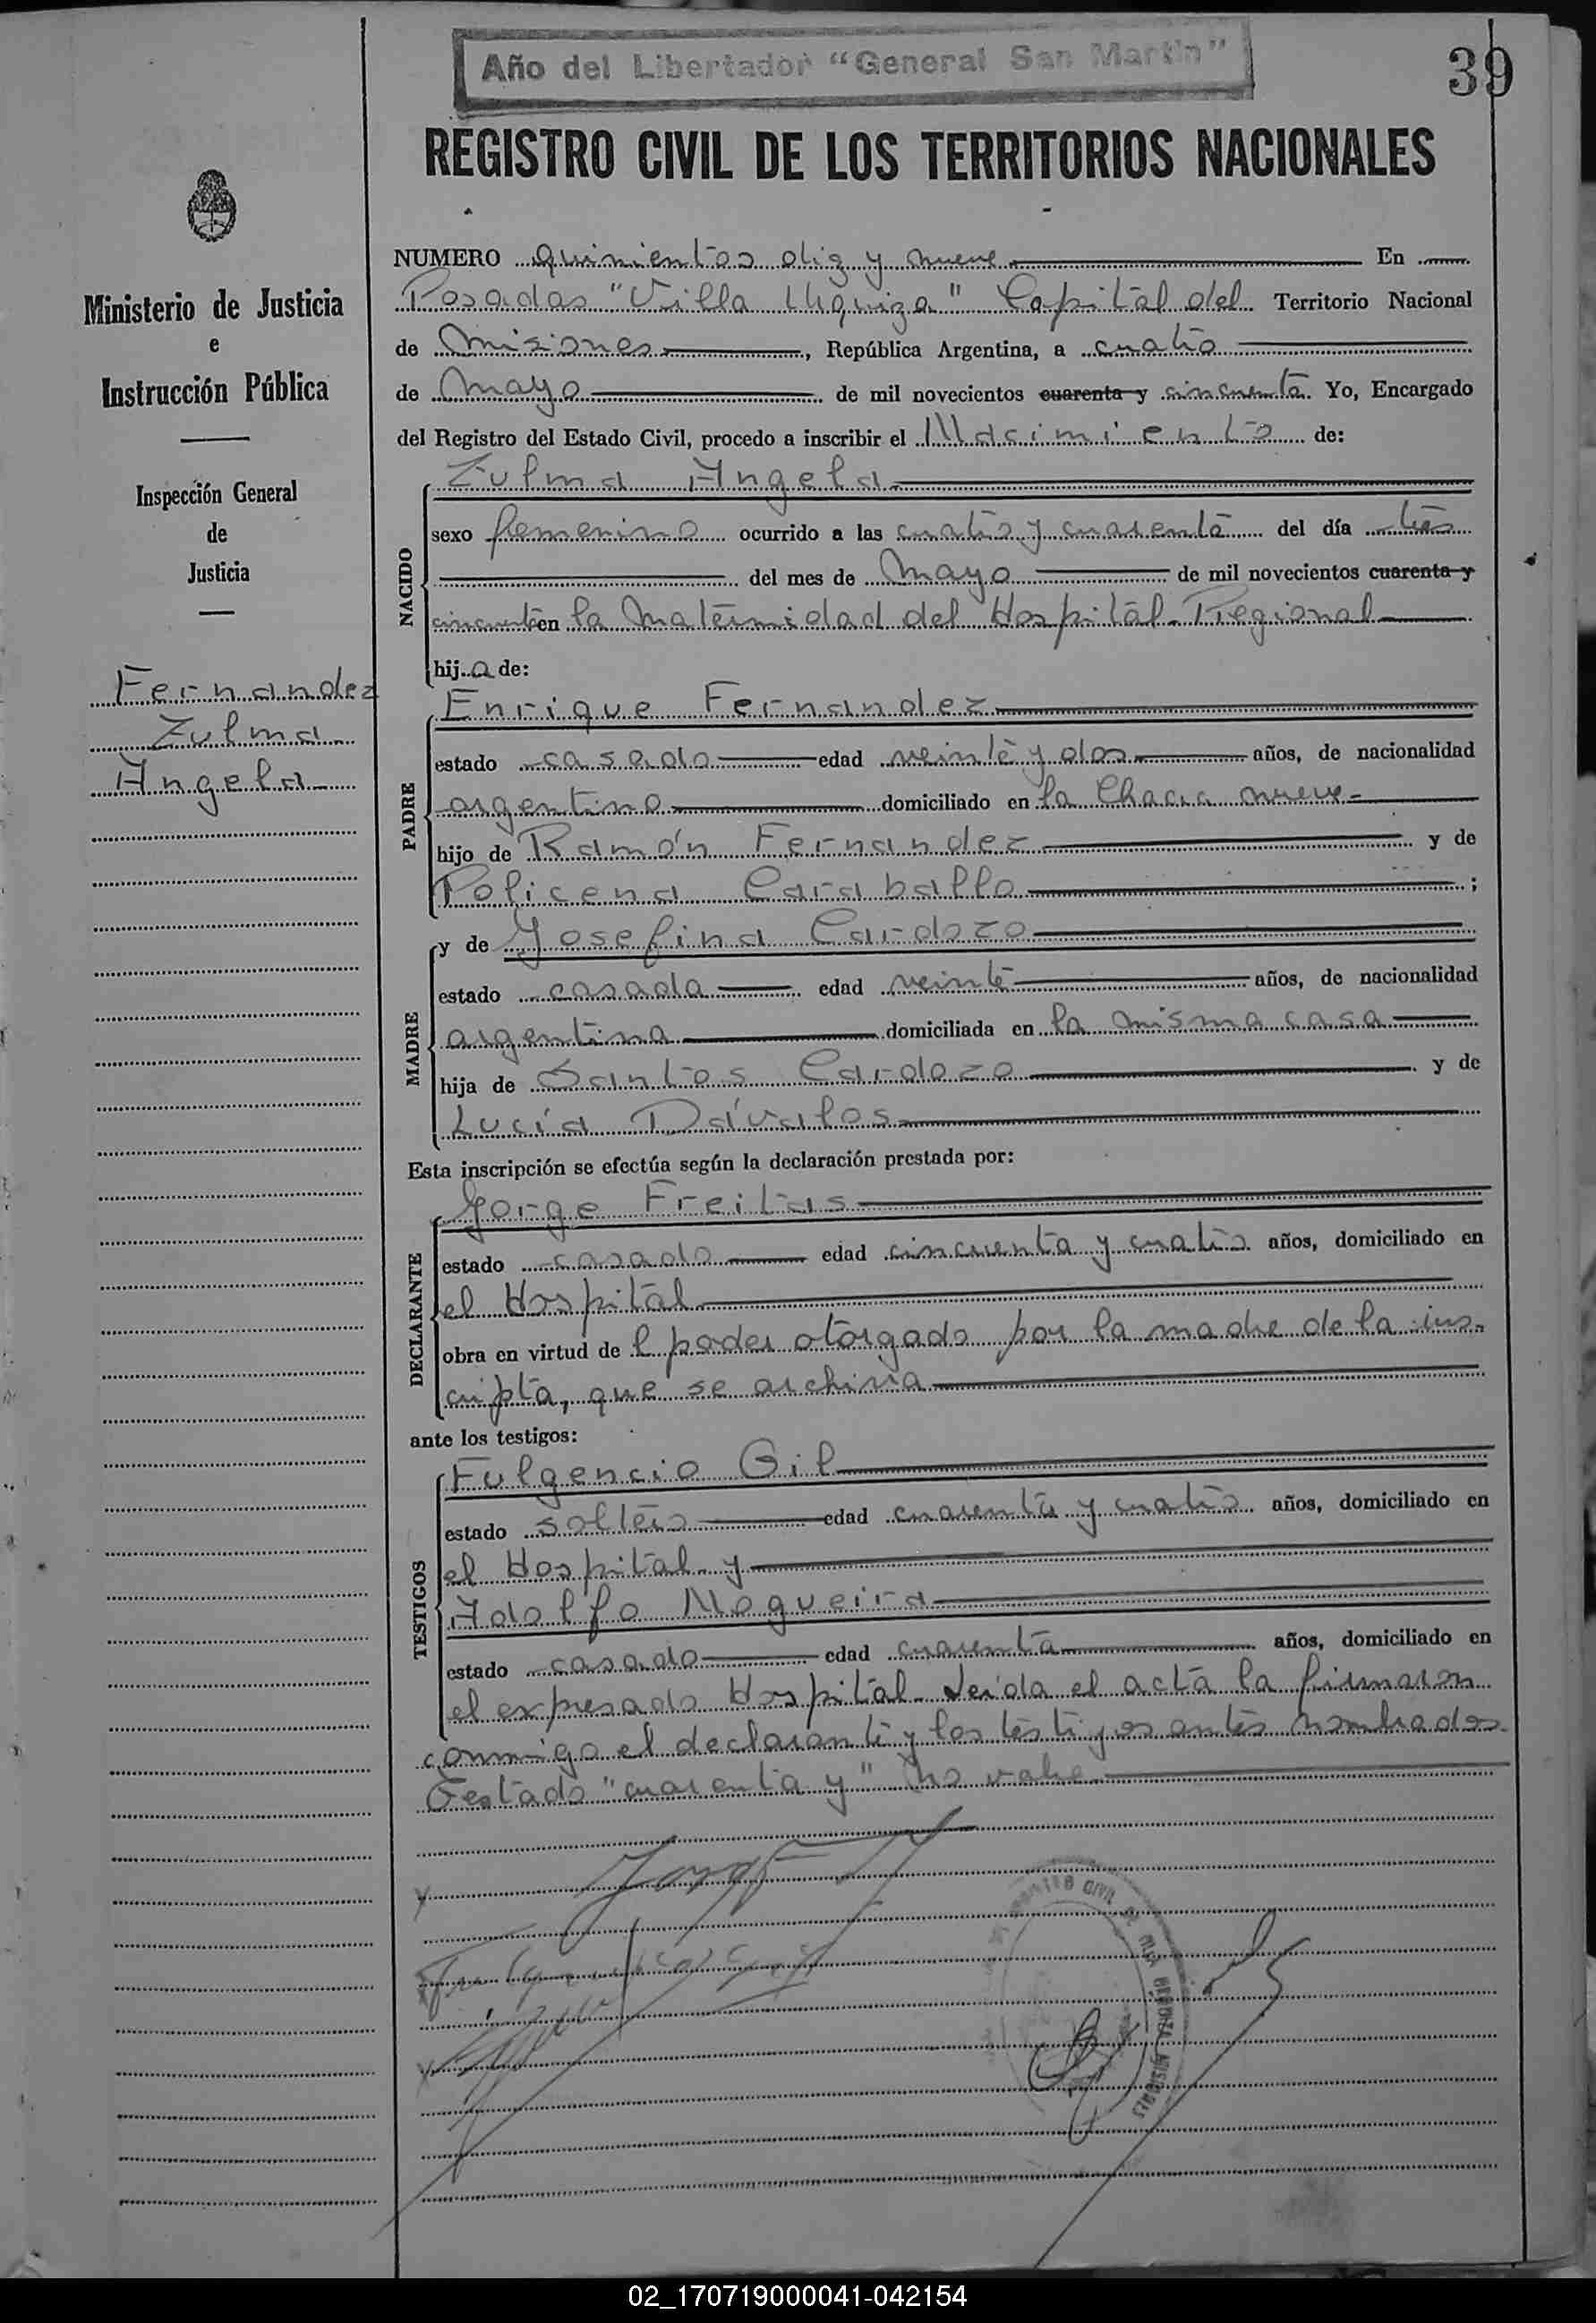 Año del Libertador "General San Martín"
39
REGISTRO CIVIL DE LOS TERRITORIOS NACIONALES
Ministerio de Justicia
e
Instrucción Pública
Inspección General
de
Justicia
Fernandez
Zulma
Angela
NUMERO quinientos diez y nueve En
Posadas "Villa Urquiza" Capital del Territorio Nacional
de Misiones, República Argentina, a cuatro
de Mayo de mil novecientos cuarenta y cincuenta Yo, Encargado
del Registro del Estado Civil, procedo a inscribir el Nacimiento de:
NACIDO
Zulma Angela
sexo femenino ocurrido a las cuatro y cuarenta del día tres
del mes de Mayo de mil novecientos cuarenta y
cincuenta en la Maternidad del Hospital Regional
hija de:
PADRE
Enrique Fernandez
estado casado edad veinte y dos años, de nacionalidad
argentino domiciliado en la Chacra nueve
hijo de Ramón Fernandez y de
Policena Caraballo;
MADRE
y de Josefina Cardozo
estado casada edad veinte años, de nacionalidad
argentina domiciliada en la misma casa
hija de Santos Cardozo y de
Lucía Dávalos
Esta inscripción se efectúa según la declaración prestada por:
DECLARANTE
Jorge Freitas
estado casado edad cincuenta y cuatro años, domiciliado en
el Hospital
obra en virtud de l poder otorgado por la madre de la ins-
cripta, que se archiva
ante los testigos:
TESTIGOS
Fulgencio Gil
estado soltero edad cuarenta y cuatro años, domiciliado en
el Hospital y
Adolfo Nogueira
estado casado edad cuarenta años, domiciliado en
el expresado Hospital. Leída el acta la firmaron
conmigo el declarante y los testigos antes nombrados.
Testado "cuarenta y" no vale
Fulgencio Gil
CIVIL DE VILLA URQUIZA MISIONES
02_170719000041-042154